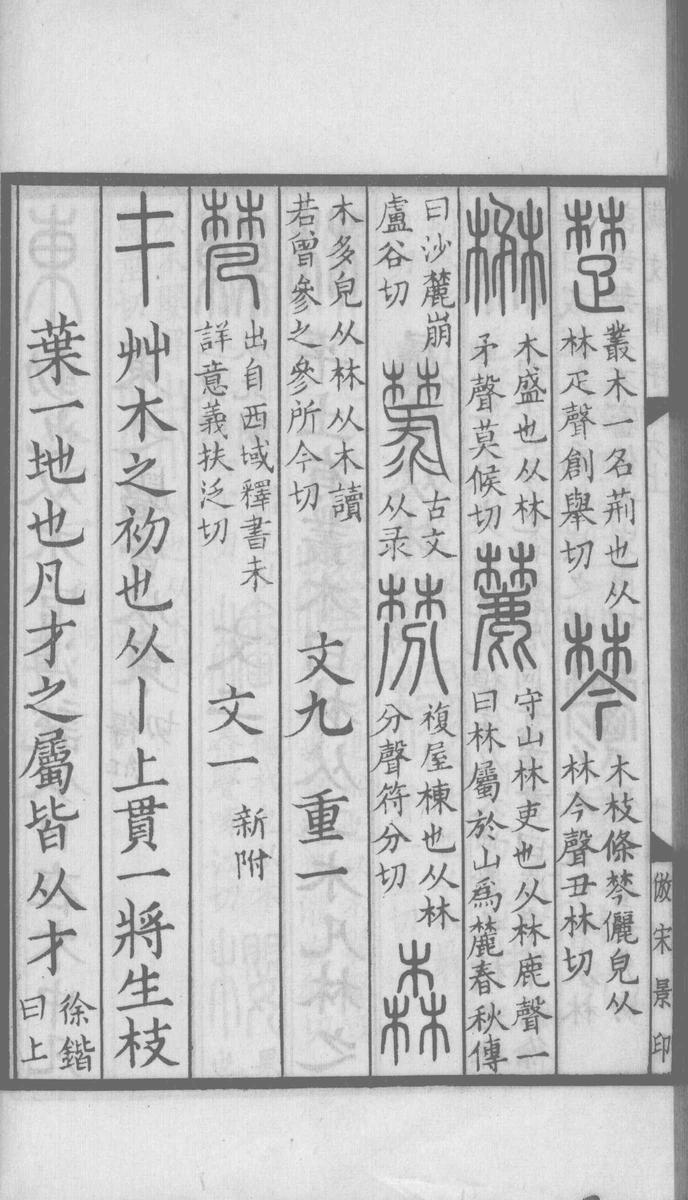 楚叢木一名荆也从林疋聲創舉切 棽木枝條棽儷皃从林今聲丑林切
楙木盛也从林矛聲莫候切 麓守山林吏也从林鹿聲一曰林屬於山爲麓春秋傳
曰沙麓崩盧谷切 古文从录 棼複屋棟也从林分聲符分切 森
木多皃从林从木讀若曾參之參所今切 文九 重一
梵出自西域釋書未詳意義扶泛切 文一 新附
才艸木之初也从丨上貫一將生枝
葉一地也凡才之屬皆从才徐鍇曰上
倣宋景印